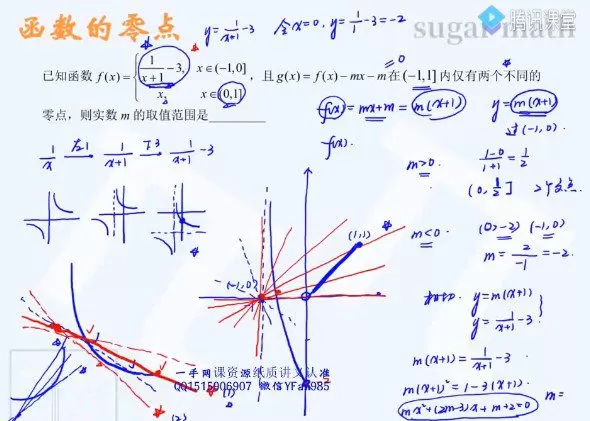 函数的零点
y=1/(x+1)-3 令x=0, y=1/1-3=-2
腾讯课堂
sugar math
已知函数 f(x)={1/(x+1)-3, x∈(-1,0]
x, x∈(0,1]
, 且g(x)=f(x)-mx-m在(-1,1]内仅有两个不同的
=0
零点，则实数 m 的取值范围是
f(x)=mx+m=m(x+1)
y=m(x+1)
过(-1,0).
f(x).
1/x 左1 1/(x+1) 下3 1/(x+1)-3
m>0. (1-0)/(1+1)=1/2
(0,1/2] 2个交点.
m<0. (0,-2) (-1,0)
m=2/-1=-2.
(1,1)
(-1,0)
-2
y=m(x+1)
y=1/(x+1)-3
m(x+1)=1/(x+1)-3
m(x+1)²=1-3(x+1).
mx²+(2m+3)x+m+2=0 m=
一手网课资源纸质讲义认准
QQ1515006907 微信YFan985
(1)
(2)